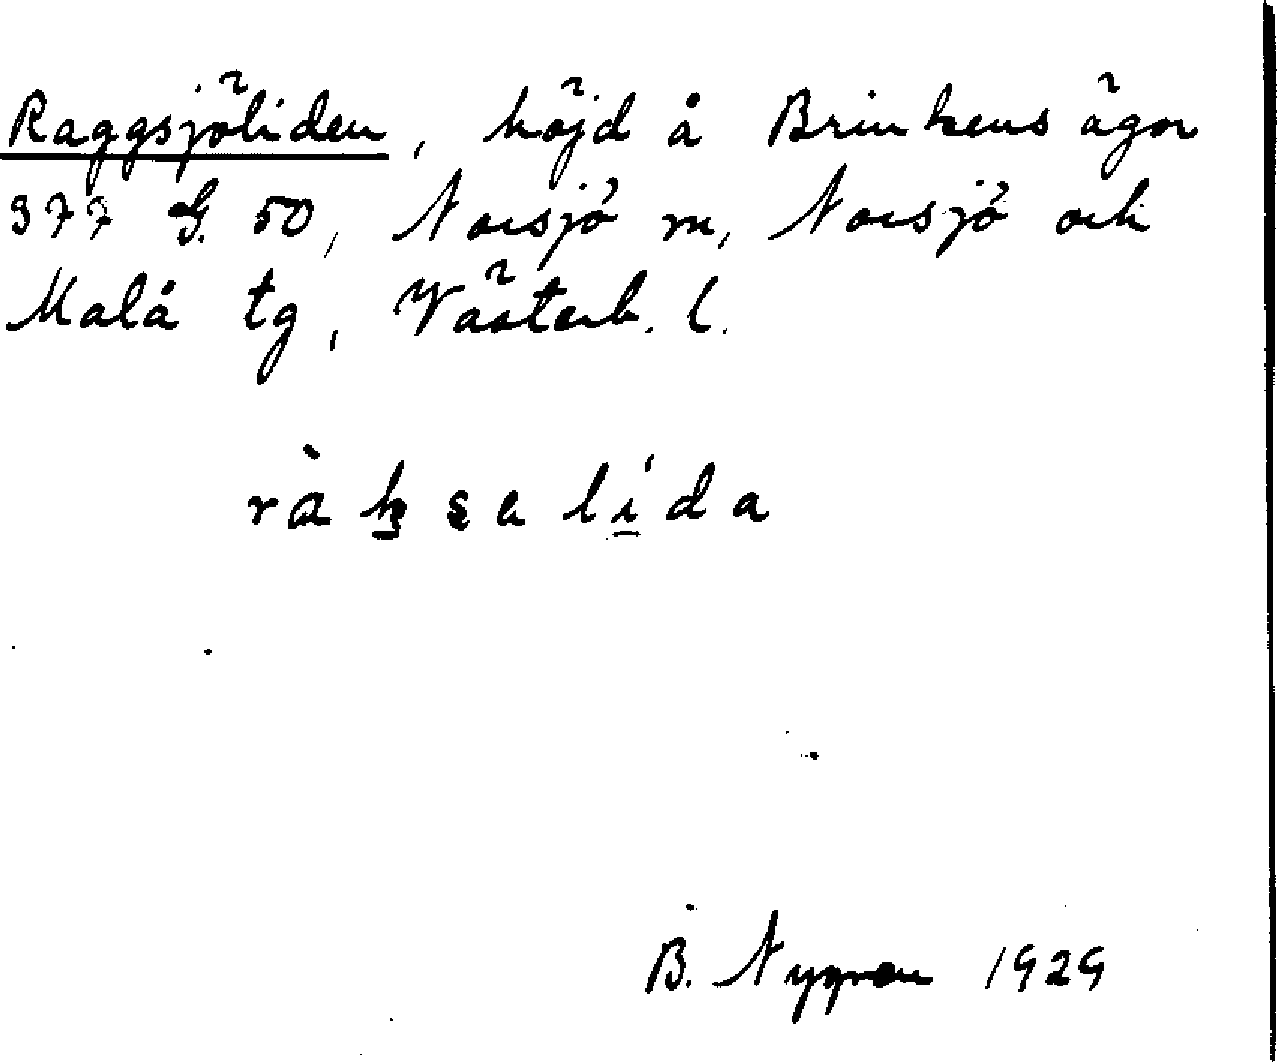 Raggsjöliden, höjd å Brinkens ägor
377 G. 50, Norsjö m, Norsjö och
Malå tg, Västerb. l.
ràksalída
B. Nygren 1929